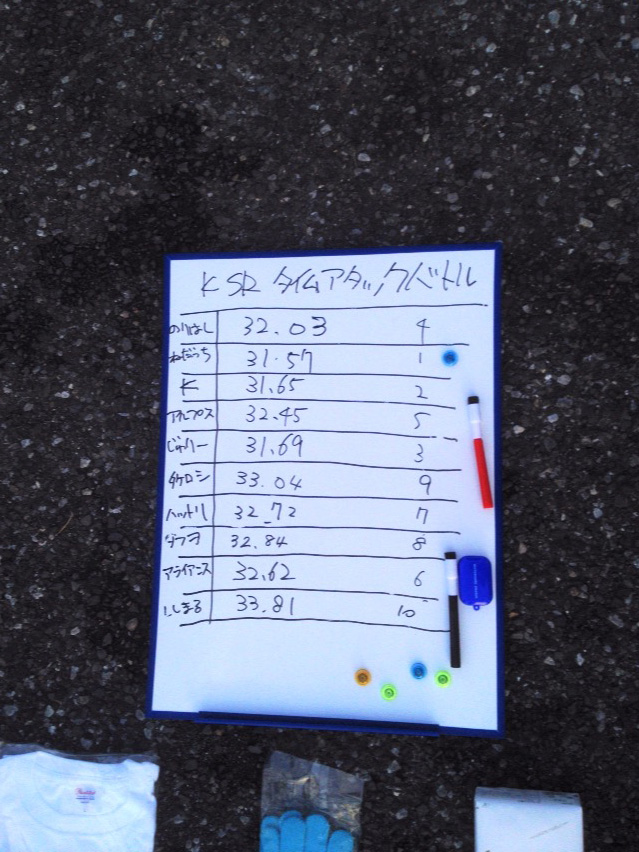 KSR タイムアタックバトル
のりはし 32.03 4
ねだっち 31.57 1
K 31.65 2
アルプス 32.45 5
じゅんー 31.69 3
タケロシ 33.04 9
ハットリ 32.72 7
32.84 8
アライアンス 32.62 6
にしまる 33.81 10